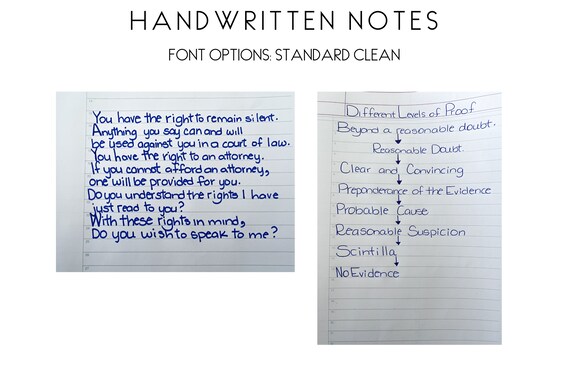 HANDWRITTEN NOTES
FONT OPTIONS: STANDARD CLEAN
You have the right to remain silent.
Anything you say can and will
be used against you in a court of law.
You have the right to an attorney.
If you cannot afford an attorney,
one will be provided for you.
Do you understand the rights I have
just read to you?
With these rights in mind,
Do you wish to speak to me?
Different Levels of Proof
Beyond a reasonable doubt.
Reasonable Doubt.
Clear and Convincing
Preponderance of the Evidence
Probable Cause
Reasonable Suspicion
Scintilla
No Evidence